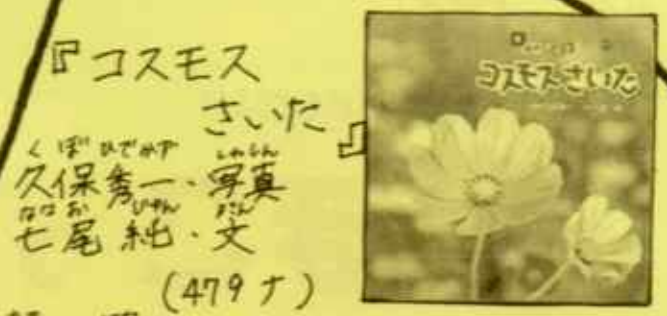 『コスモス
さいた』
くぼひでかず しゃしん
久保秀一・写真
ななお じゅん ぶん
七尾純・文
(479ナ)
コスモスさいた